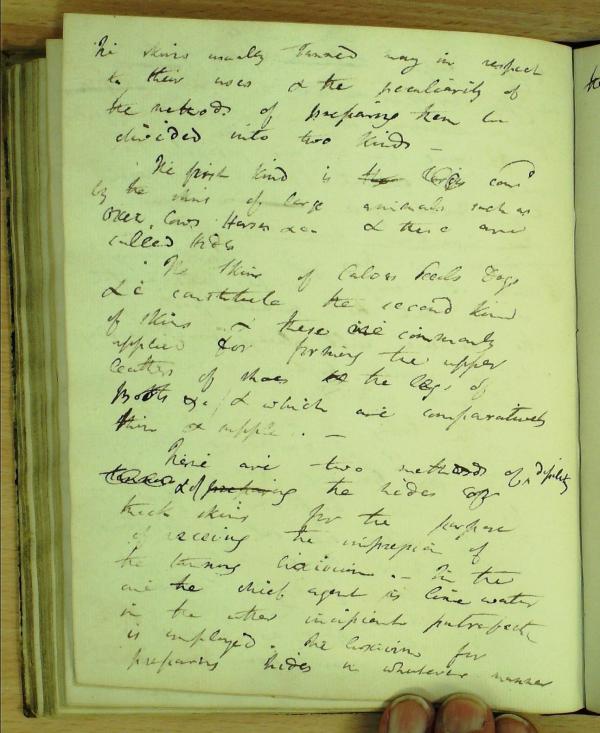 The skins usually tanned may in respect
to their uses & the peculiarity of
the methods of preparing them be
divided into two kinds –
The first kind is
by the skins of large animals such as
Oxen, Cows Horses &c. & these are
called Hides
The Skins of Calves Seals Dogs
&c constitute the second kind
of skins – these are commonly
applied for forming the upper
leathers of shoes the legs of
Boots &c / & which are comparatively
thin & supple. –
There are two methods of
& of preparing the hides or
thick skins for the purpose
of receiving the impression of
the tanning lixivium. – In the
one the chief agent is lime water
in the other incipient putrefaction
is employed. The lixivium for
preparing hides in whatever manner